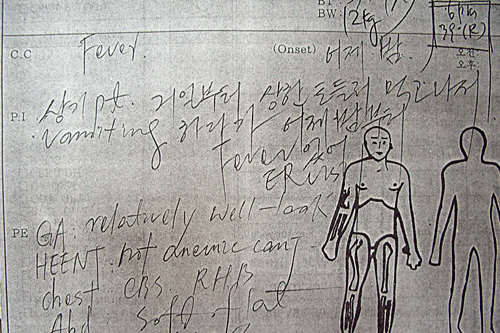 BT
BW: 12kg
39°(R)
C.C Fever. (Onset) 어제 밤.
오전
오후
P.I 상기 pt. 거일부터 상한 도돌제 먹고나서
vomiting 하다가 어제밤부터
Fever 있어
ER visit
PE GA: relatively well-look
HEENT: not anemic conj
chest CBS RHB
Abd soft & flat